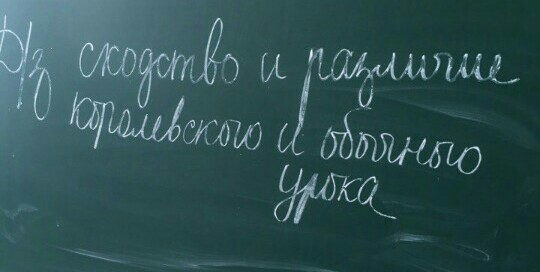 Д/з сходство и различие
королевского и обычного
урока